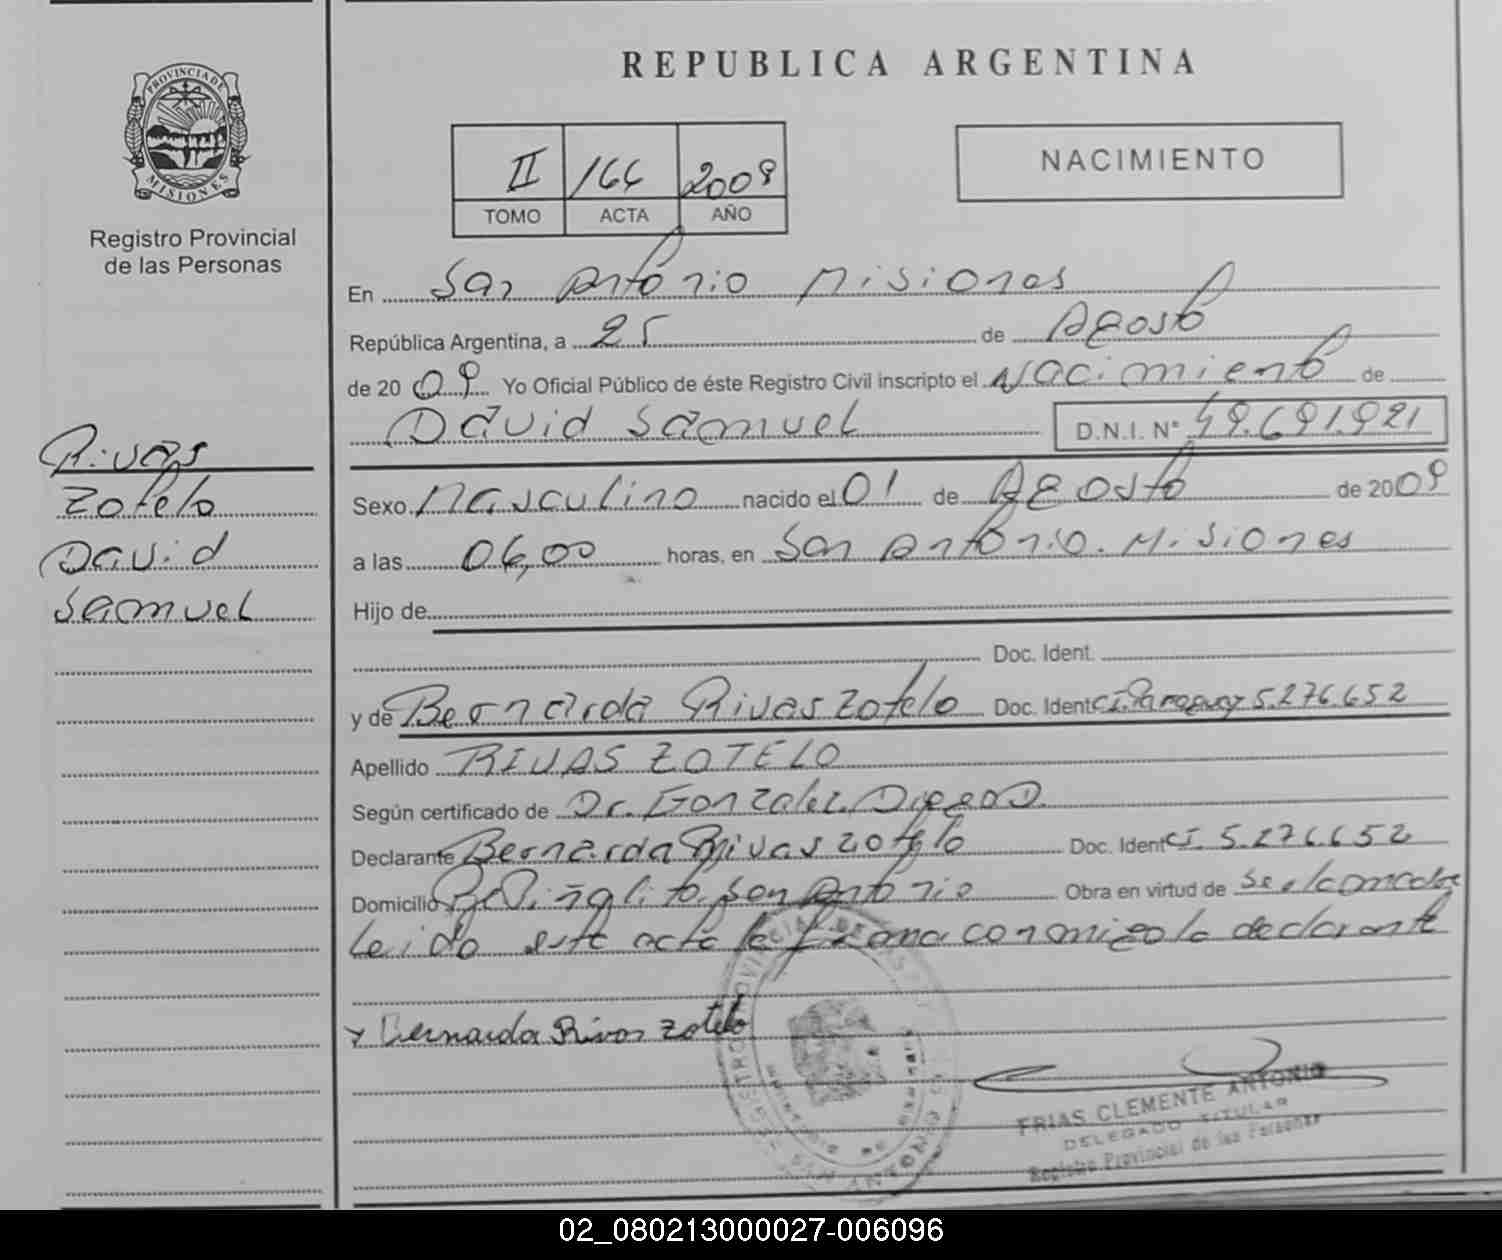 REPUBLICA ARGENTINA
PROVINCIA DE
MISIONES
Registro Provincial
de las Personas
II 2009
TOMO ACTA AÑO
NACIMIENTO
En San Antonio Misiones
República Argentina, a 25 de Agosto
de 20 09 Yo Oficial Público de éste Registro Civil inscripto el Nacimiento de
David Samuel D.N.I. N° 49.691.921
Rivas
Zotelo
David
Samuel
Sexo Masculino nacido el 01 de Agosto de 2009
a las 06,00 horas, en San Antonio. Misiones
Hijo de
Doc. Ident.
y de Bernarda Rivas Zotelo Doc. Ident C.I. Paraguay 5.276.652
Apellido RIVAS ZOTELO
Según certificado de Dr. Gonzalez, Diego D.
Declarante Bernarda Rivas Zotelo Doc. Ident C.I. 5.276.652
Domicilio San Antonio Obra en virtud de
Leido este acta la firma conmigo la declarante
x Bernarda Rivas Zotelo
FRIAS CLEMENTE ANTONIO
DELEGADO TITULAR
Registro Provincial de las Personas
02_080213000027-006096